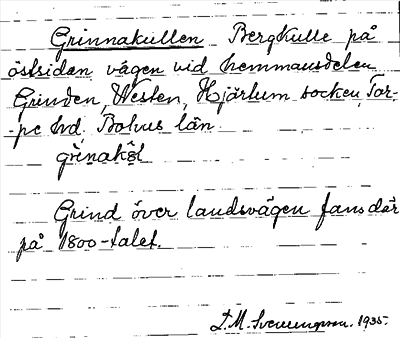 Grinnakullen Bergkulle på
östsidan vägen vid hemmansdelen
Grinden, Westen, Hjärtum socken, Tor-
-pe hd. Bohus län
grinaköl
Grind över landsvägen fans där
på 1800-talet.
D.M. Svenungsson. 1935.